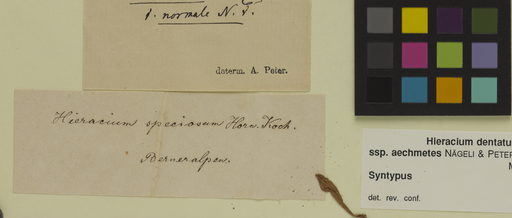 1. normale N. P.
determ. A. Peter.
Hieracium speciosum Horn. Koch.
Berneralpen.
Hieracium dentatu
ssp. aechmetes NÄGELI & PETER
Syntypus
det. rev. conf.